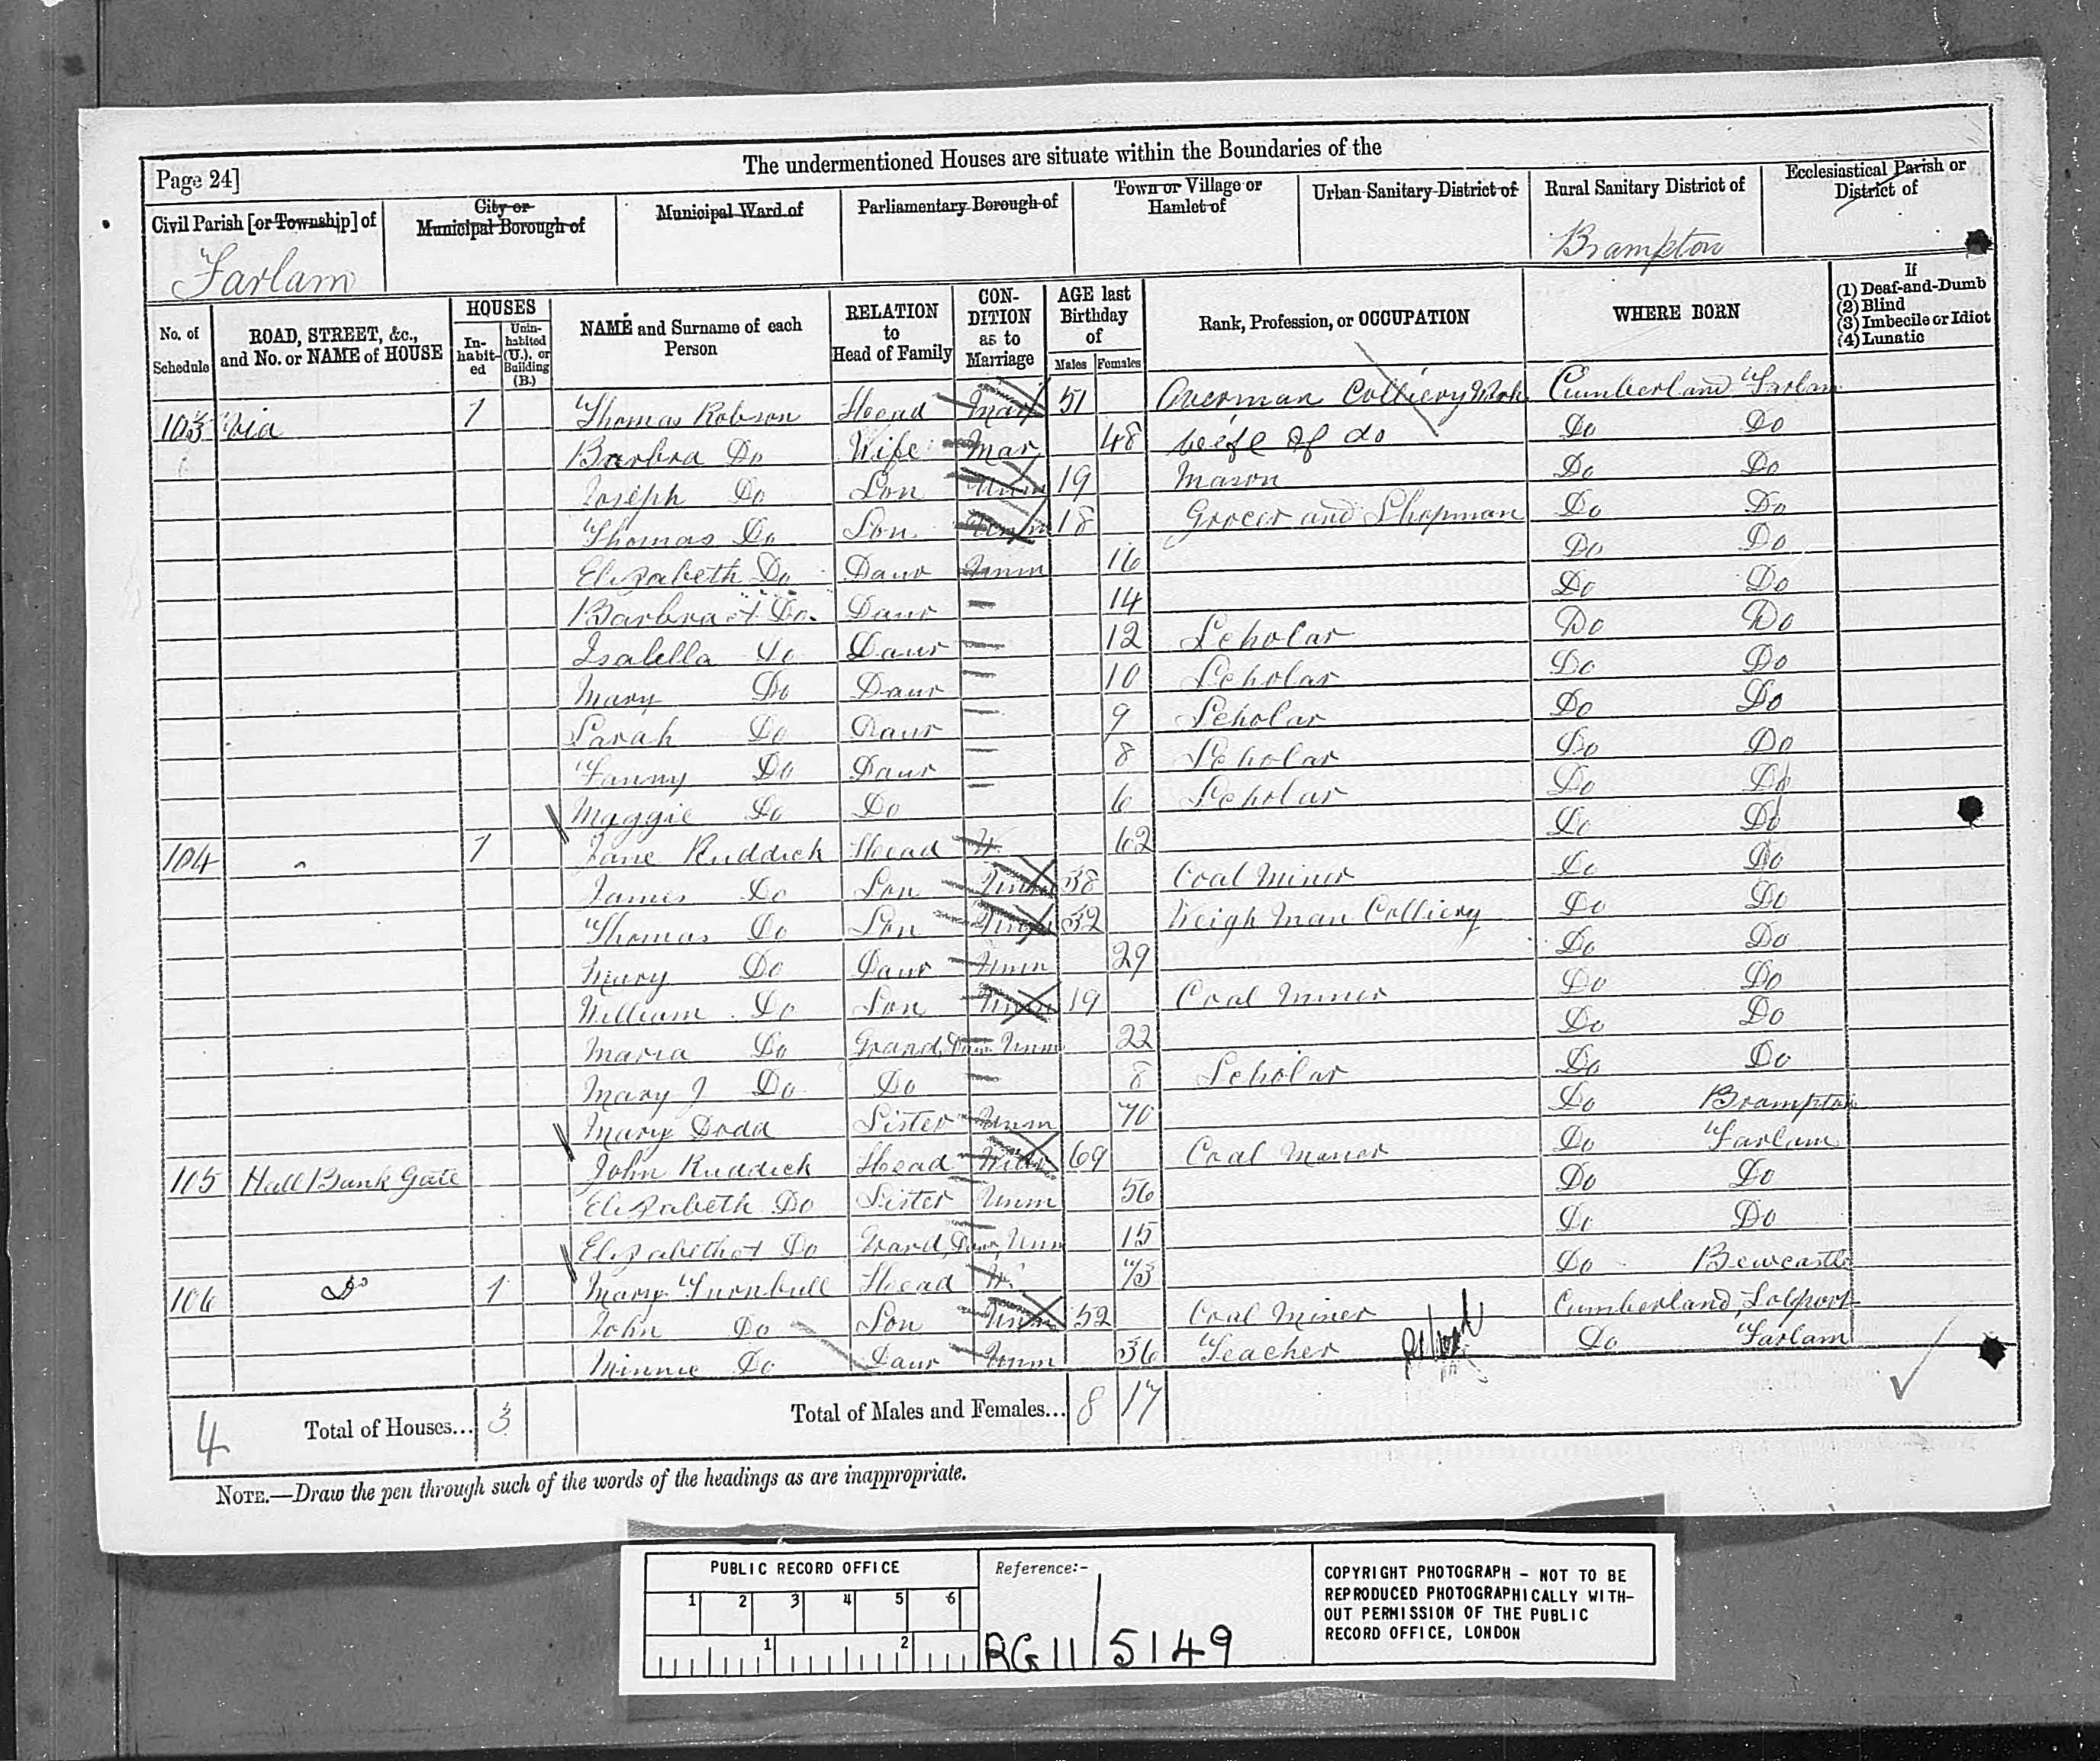 Page 24]
The undermentioned Houses are situate within the Boundaries of the
Civil Parish [or Township] of
City or Municipal Borough of
Municipal Ward of
Parliamentary Borough of
Town or Village or Hamlet of
Urban Sanitary District of
Rural Sanitary District of
Ecclesiastical Parish or District of
Farlam
Brampton
No. of Schedule
ROAD, STREET, &c., and No. or NAME of HOUSE
HOUSES
In-habit-ed
Unin-habited (U.), or Building (B.)
NAME and Surname of each Person
RELATION to Head of Family
CON-DITION as to Marriage
AGE last Birthday of
Males Females
Rank, Profession, or OCCUPATION
WHERE BORN
If
(1) Deaf-and-Dumb
(2) Blind
(3) Imbecile or Idiot
(4) Lunatic
103 1 Thomas Robson Head Mar 51 Overman Colliery Cumberland Farlam
Barbra Do Wife Mar 48 wife of do Do Do
Joseph Do Son Unm 19 Mason Do Do
Thomas Do Son Unm 18 Grocer and Shopman Do Do
Elizabeth Do Daur Unm 16 Do Do
Barbra A Do. Daur — 14 Do Do
Isabella Do Daur — 12 Scholar Do Do
Mary Do Daur — 10 Scholar Do Do
Sarah Do Daur — 9 Scholar Do Do
Fanny Do Daur — 8 Scholar Do Do
Maggie Do Do — 6 Scholar Do Do
104 " 1 Jane Ruddick Head W. 62 Do Do
James Do Son Unm 38 Coal Miner Do Do
Thomas Do Son Unm 32 Weigh Man Colliery Do Do
Mary Do Daur Unm 29 Do Do
William Do Son Unm 19 Coal Miner Do Do
Maria Do Grand Daur Unm 22 Do Do
Mary J Do Do — 8 Scholar Do Do
Mary Dodd Sister Unm 70 Do Brampton
105 Hall Bank Gate John Ruddick Head 69 Coal Miner Do Farlam
Elizabeth Do Sister Unm 56 Do Do
Elizabeth A Do Grand Daur Unm 15 Do Do
106 Do 1 Mary Turnbull Head W. 73 Do Bewcastle
John Do Son Unm 52 Coal Miner Cumberland Solport
Minnie Do Daur Unm 36 Teacher Do Farlam
4 Total of Houses... 3 Total of Males and Females... 8 17
NOTE.—Draw the pen through such of the words of the headings as are inappropriate.
PUBLIC RECORD OFFICE
1 2 3 4 5 6
1 2
Reference:-
RG 11 / 5149
COPYRIGHT PHOTOGRAPH - NOT TO BE
REPRODUCED PHOTOGRAPHICALLY WITH-
OUT PERMISSION OF THE PUBLIC
RECORD OFFICE, LONDON